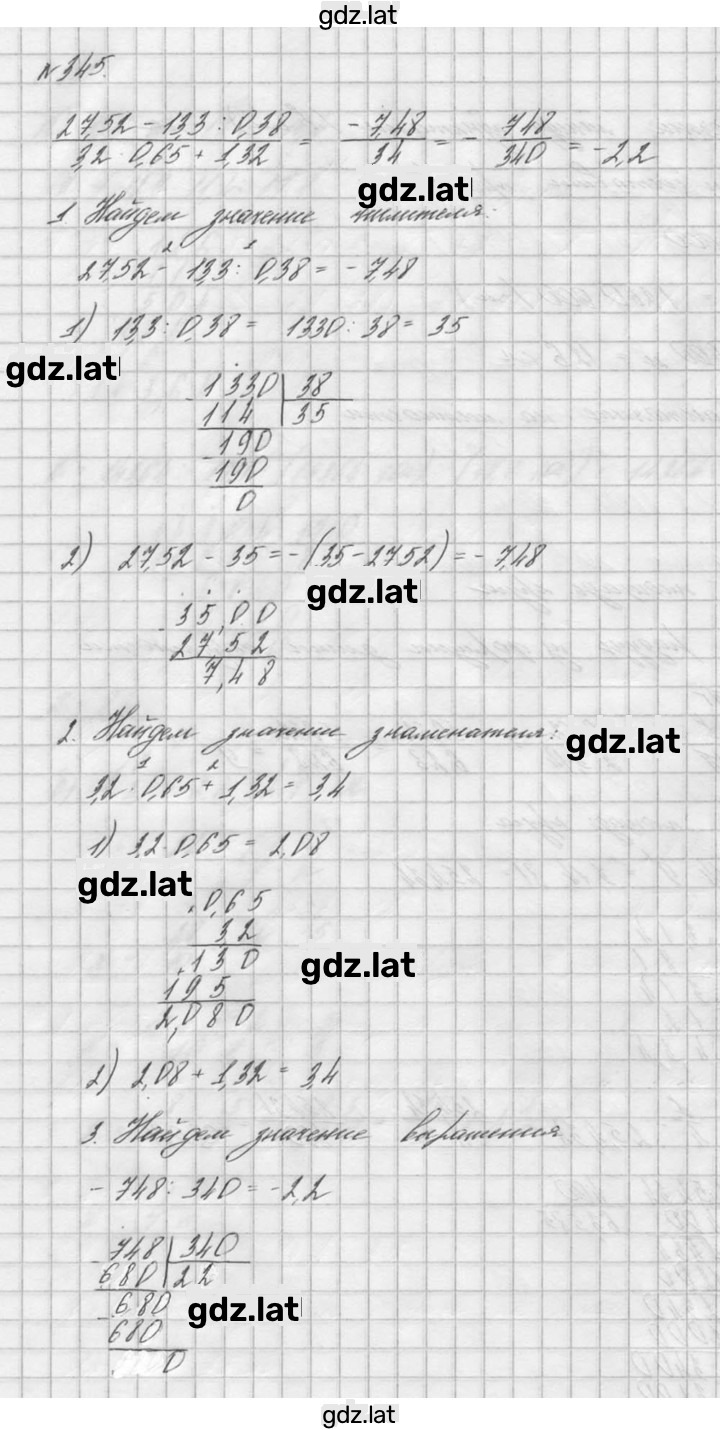 gdz.lat
№345.
27,52 - 13,3 : 0,38 / 3,2 · 0,65 + 1,32 = -7,48 / 3,4 = - 748 / 340 = -2,2
gdz.lat
1. Найдем значение числителя:
27,52 - 13,3 : 0,38 = -7,48
1) 13,3 : 0,38 = 1330 : 38 = 35
gdz.lat
1330 | 38
114 35
190
190
0
2) 27,52 - 35 = -(35 - 27,52) = -7,48
gdz.lat
35,00
27,52
7,48
2. Найдем значение знаменателя:
gdz.lat
3,2 · 0,65 + 1,32 = 3,4
1) 3,2 · 0,65 = 2,08
gdz.lat
0,65
32
130
gdz.lat
195
2,080
2) 2,08 + 1,32 = 3,4
3. Найдем значение выражения
-748 : 340 = -2,2
748 | 340
680 2,2
680
gdz.lat
680
0
gdz.lat